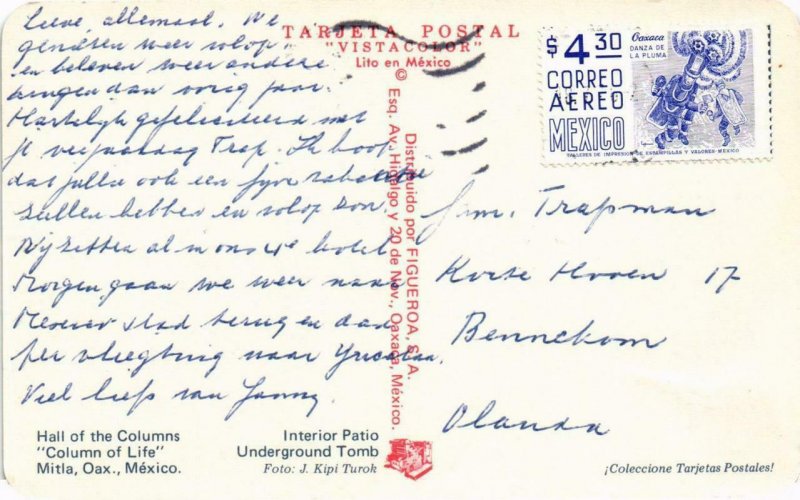 Lieve allemaal. We
genieten weer volop
en beleven weer andere
dingen dan vorig jaar.
Hartelijk gefeliciteerd met
je verjaardag Trap. Ik hoop
dat jullie ook een fijne vakantie
zullen hebben en volop zon.
Wij zitten al in ons 4e hotel
Morgen gaan we weer naar
Mexico stad terug en dan
per vliegtuig naar Yucatan.
Veel liefs van Janny
TARJETA POSTAL
"VISTACOLOR"
Lito en México
©
Distribuido por FIGUEROA, S. A.
Esq. Av. Hidalgo y 20 de Nov., Oaxaca, México.
$4.30
Oaxaca
DANZA DE
LA PLUMA
CORREO
AEREO
MEXICO
TALLERES DE IMPRESION DE ESTAMPILLAS Y VALORES-MEXICO
Fam. Trapman
Korte Hoeven 17
Bennekom
Olanda
Hall of the Columns
"Column of Life"
Mitla, Oax., México.
Interior Patio
Underground Tomb
Foto: J. Kipi Turok
¡Coleccione Tarjetas Postales!